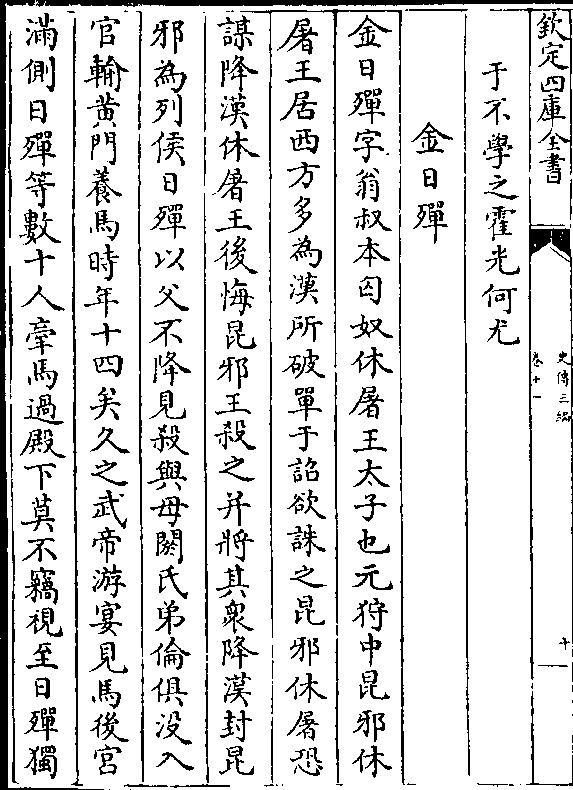 欽定四庫全書
史傳三編
卷十一
十
于不學之霍光何尤
金日殫
金日殫字翁叔本匈奴休屠王太子也元狩中昆邪休
屠王居西方多為漢所破單于詔欲誅之昆邪休屠恐
謀降漢休屠王後悔昆邪王殺之并將其衆降漢封昆
邪為列侯日殫以父不降見殺與母閼氏弟倫俱没入
官輸黄門養馬時年十四矣久之武帝游宴見馬後宫
滿側日殫等數十人牽馬過殿下莫不竊視至日殫獨